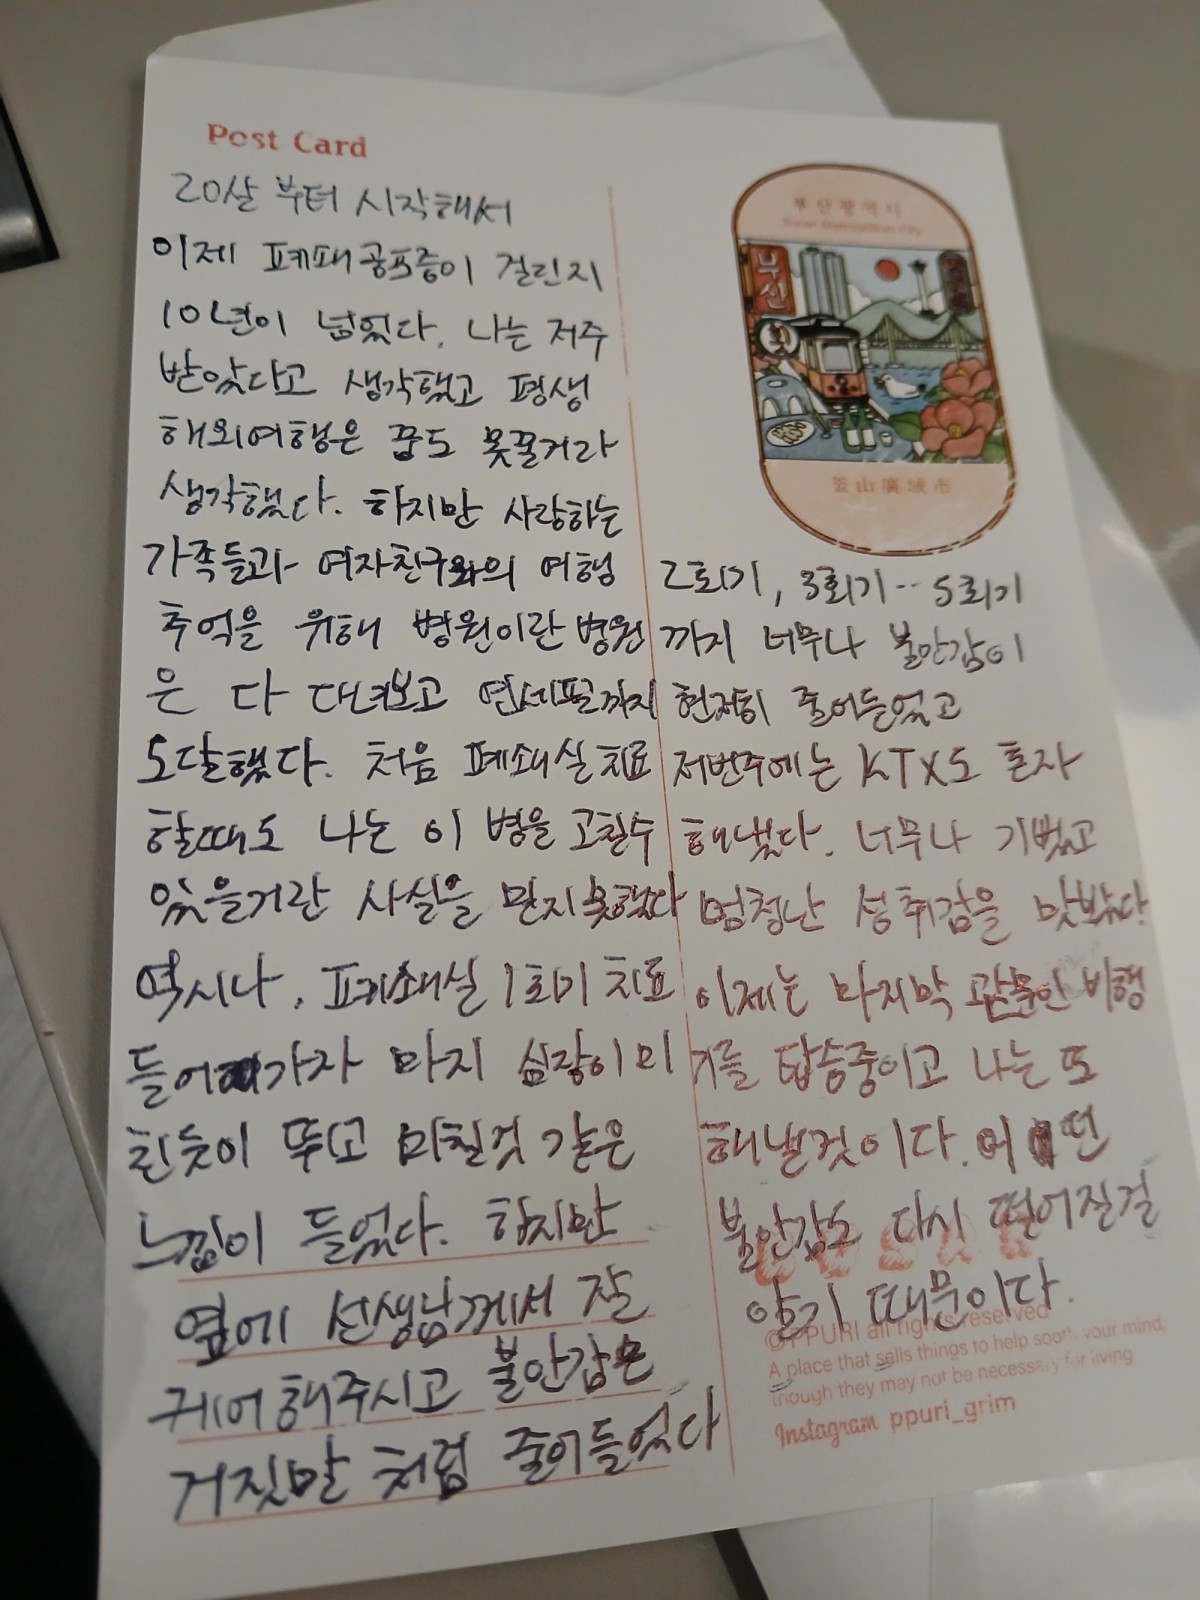 Post Card
20살 부터 시작해서
이제 폐쇄공포증이 걸린지
10년이 넘었다. 나는 저주
받았다고 생각했고 평생
해외여행은 꿈도 못꿀거라
생각했다. 하지만 사랑하는
가족들과 여자친구와의 여행
추억을 위해 병원이란 병원
은 다 다녀보고 연세필까지
도달했다. 처음 폐쇄실 치료
할때도 나는 이 병을 고칠수
있을거란 사실을 믿지 못했다
역시나, 폐쇄실 1회기 치료
들어가자 마치 심장이 미
친듯이 뛰고 미칠것 같은
느낌이 들었다. 하지만
옆에 선생님께서 잘
케어해주시고 불안감은
거짓말 처럼 줄어들었다
부산광역시
Busan Metropolitan City
부산
횟
釜山廣域市
2회기, 3회기 .. 5회기
까지 너무나 불안감이
현저히 줄어들었고
저번주에는 KTX도 혼자
해냈다. 너무나 기뻤고
엄청난 성취감을 맛봤다
이제는 마지막 관문인 비행
기를 탑승중이고 나는 또
해낼것이다. 어떤
불안감도 다시 떨어질걸
알기 때문이다.
©PPURI all rights reserved
A place that sells things to help soothe your mind,
though they may not be necessary for living
Instagram ppuri_grim